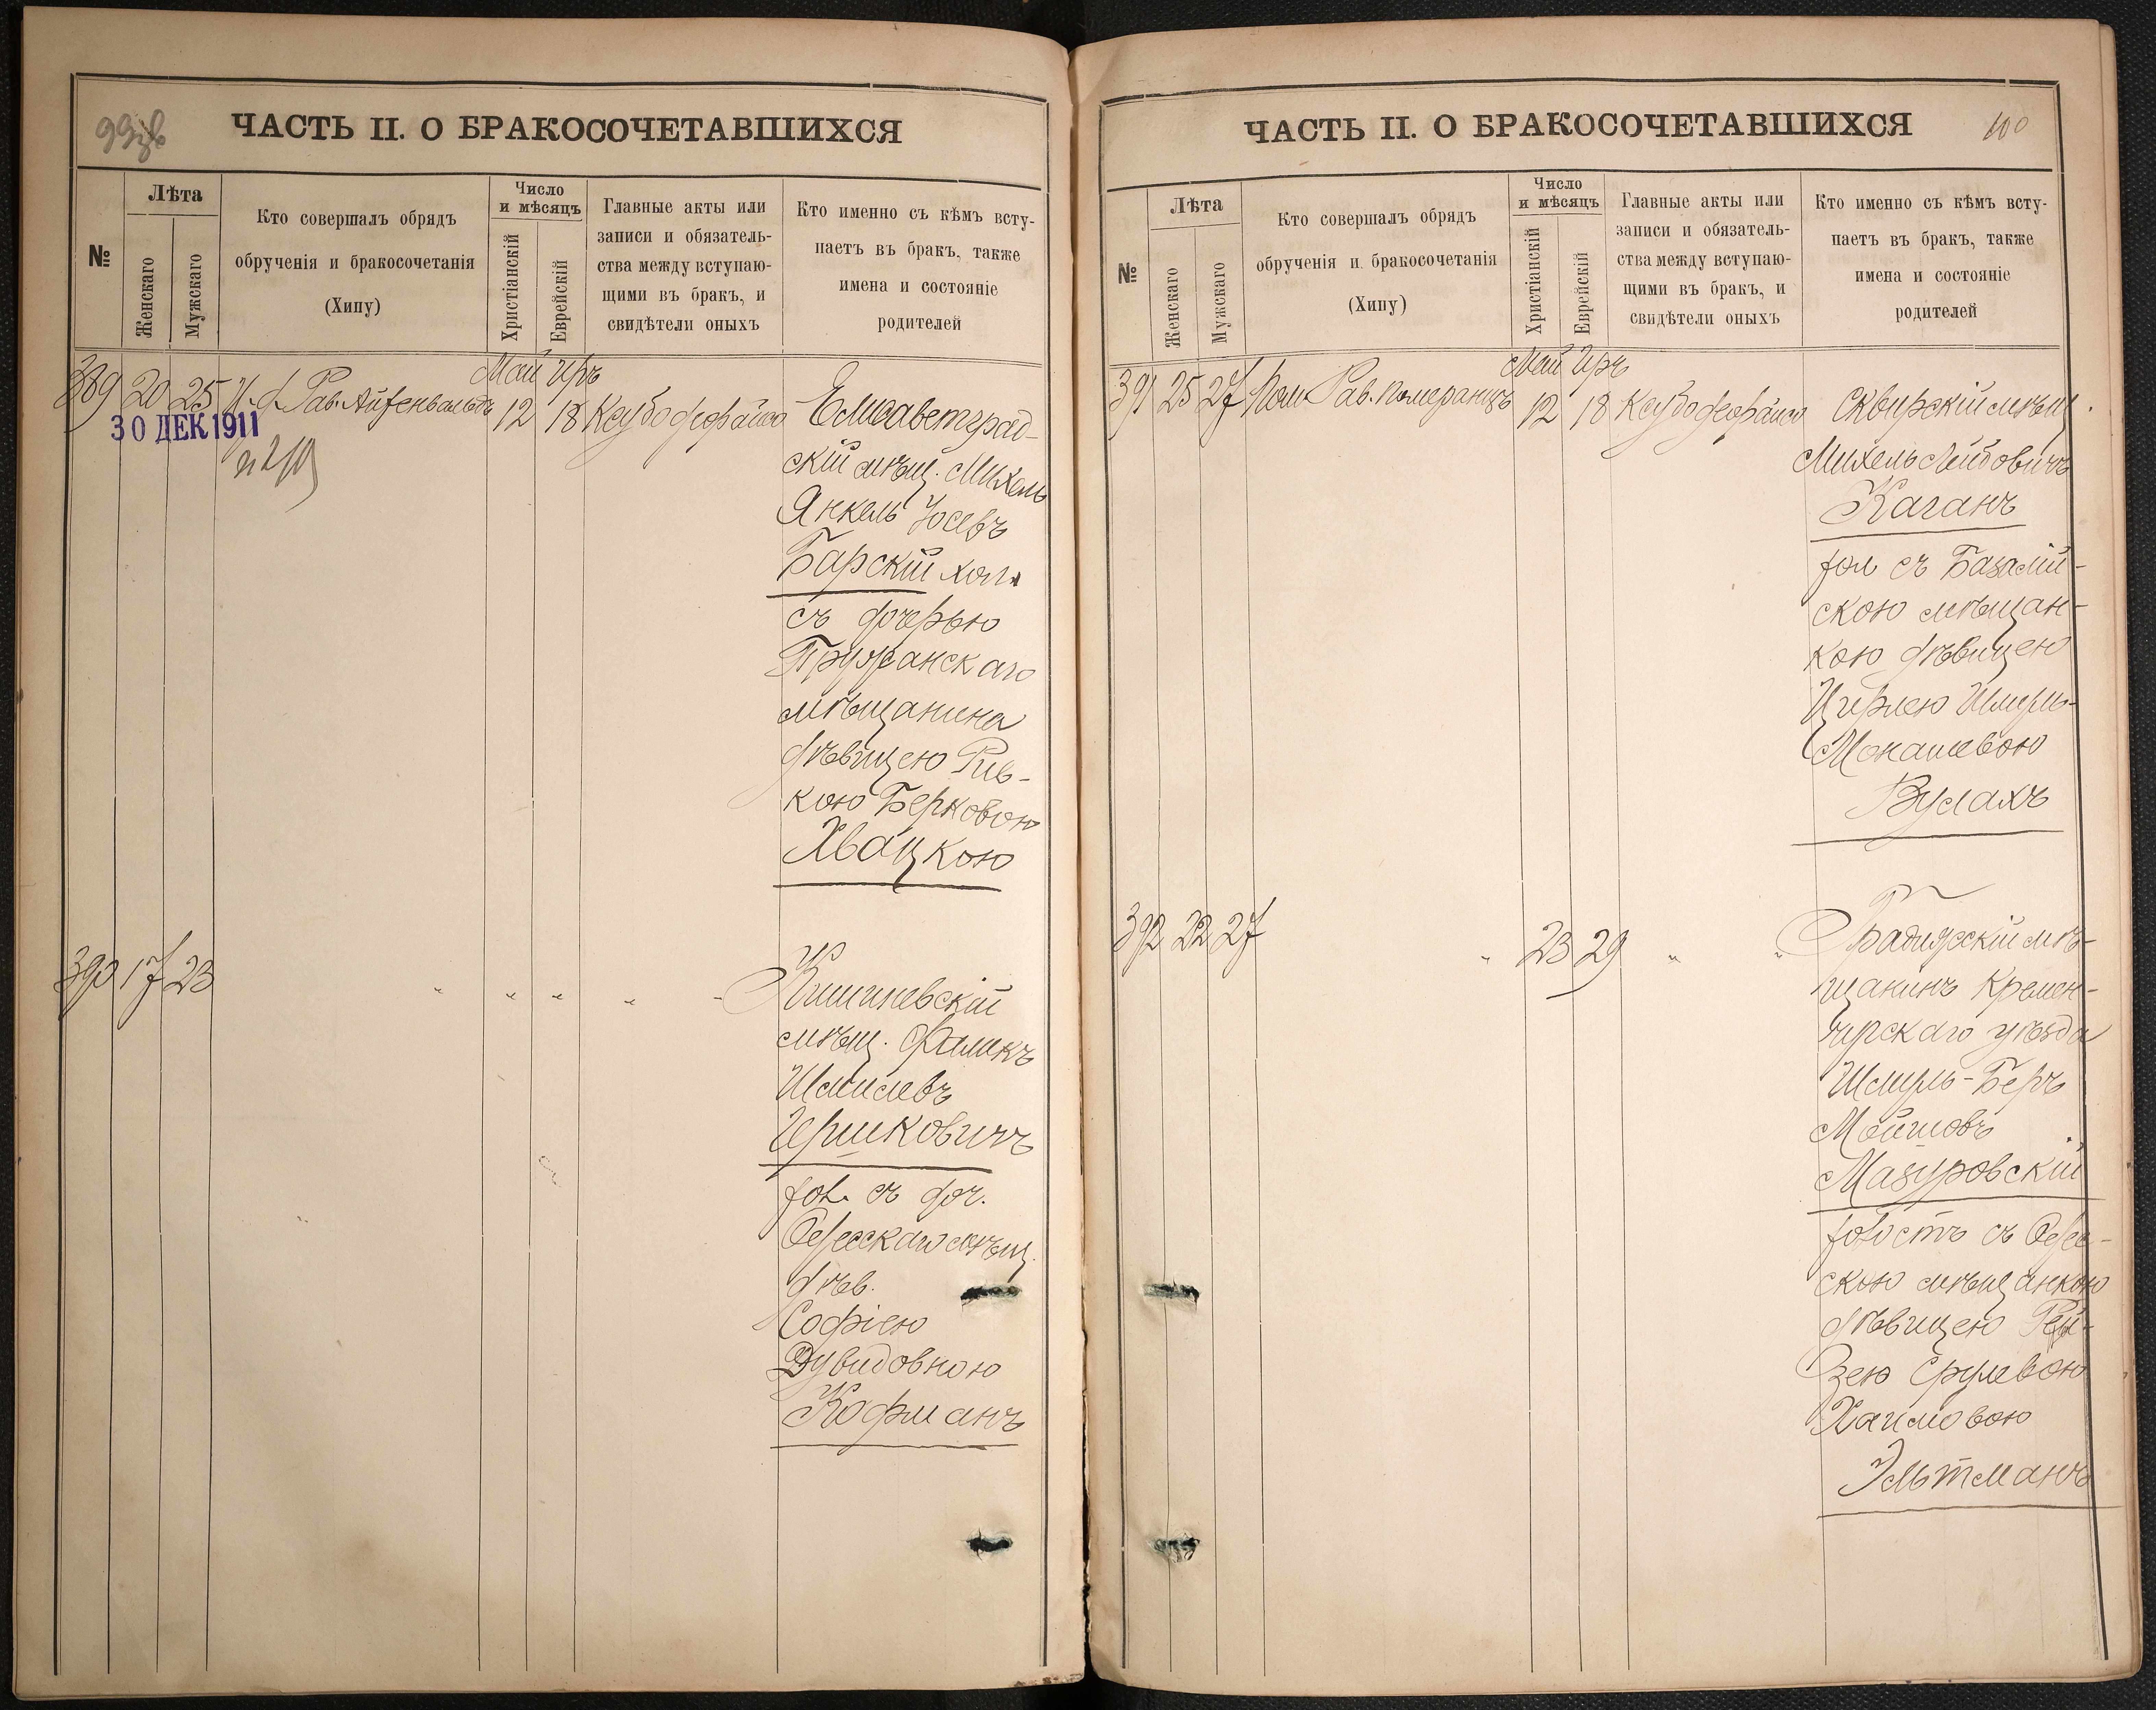 99об
ЧАСТЬ II. О БРАКОСОЧЕТАВШИХСЯ
№
Лѣта
Женскаго
Мужскаго
Кто совершалъ обрядъ
обрученія и бракосочетанія
(Хипу)
Число
и мѣсяцъ
Христіанскій
Еврейскій
Главные акты или
записи и обязатель-
ства между вступаю-
щими въ бракъ, и
свидѣтели оныхъ
Кто именно съ кѣмъ всту-
паетъ въ бракъ, также
имена и состояніе
родителей
Май Иръ
389 20 25 И.д. Рав. Айзенвальдъ 12 18 Ксубо деорайсо Елисаветград-
30 ДЕК 1911
скій мѣщ. Михель
Янкель Іосевъ
Барскій хол.
съ дочерью
Пружанскаго
мѣщанина
дѣвицею Рив-
кою Берковою
Хвацкою
390 17 23 " " " " " Кишиневскій
мѣщ. Фаликъ
Шмилевъ
Гершковичъ
хол. съ доч.
Одесскаго мѣщ.
дѣв.
Софіею
Дувидовною
Кофманъ
100
ЧАСТЬ II. О БРАКОСОЧЕТАВШИХСЯ
№
Лѣта
Женскаго
Мужскаго
Кто совершалъ обрядъ
обрученія и бракосочетанія
(Хипу)
Число
и мѣсяцъ
Христіанскій
Еврейскій
Главные акты или
записи и обязатель-
ства между вступаю-
щими въ бракъ, и
свидѣтели оныхъ
Кто именно съ кѣмъ всту-
паетъ въ бракъ, также
имена и состояніе
родителей
Май Иръ
391 25 27 Пом. Рав. Померанцъ 12 18 Ксубо деорайсо Сквирскій мѣщ.
Михель Лейбовичъ
Каганъ
хол съ Базалій-
скою мѣщан-
кою дѣвицею
Цирлею Шмуль-
Монашевою
Вулахъ
392 22 27 " 23 29 " " Градижскій мѣ-
щанинъ Кремен-
чугскаго уѣзда
Шмуль-Беръ
Мойшовъ
Мазуровскій
холостъ съ Одес-
скою мѣщанкою
дѣвицею Рей-
зею Срулевою
Хаимовою
Эльтманъ